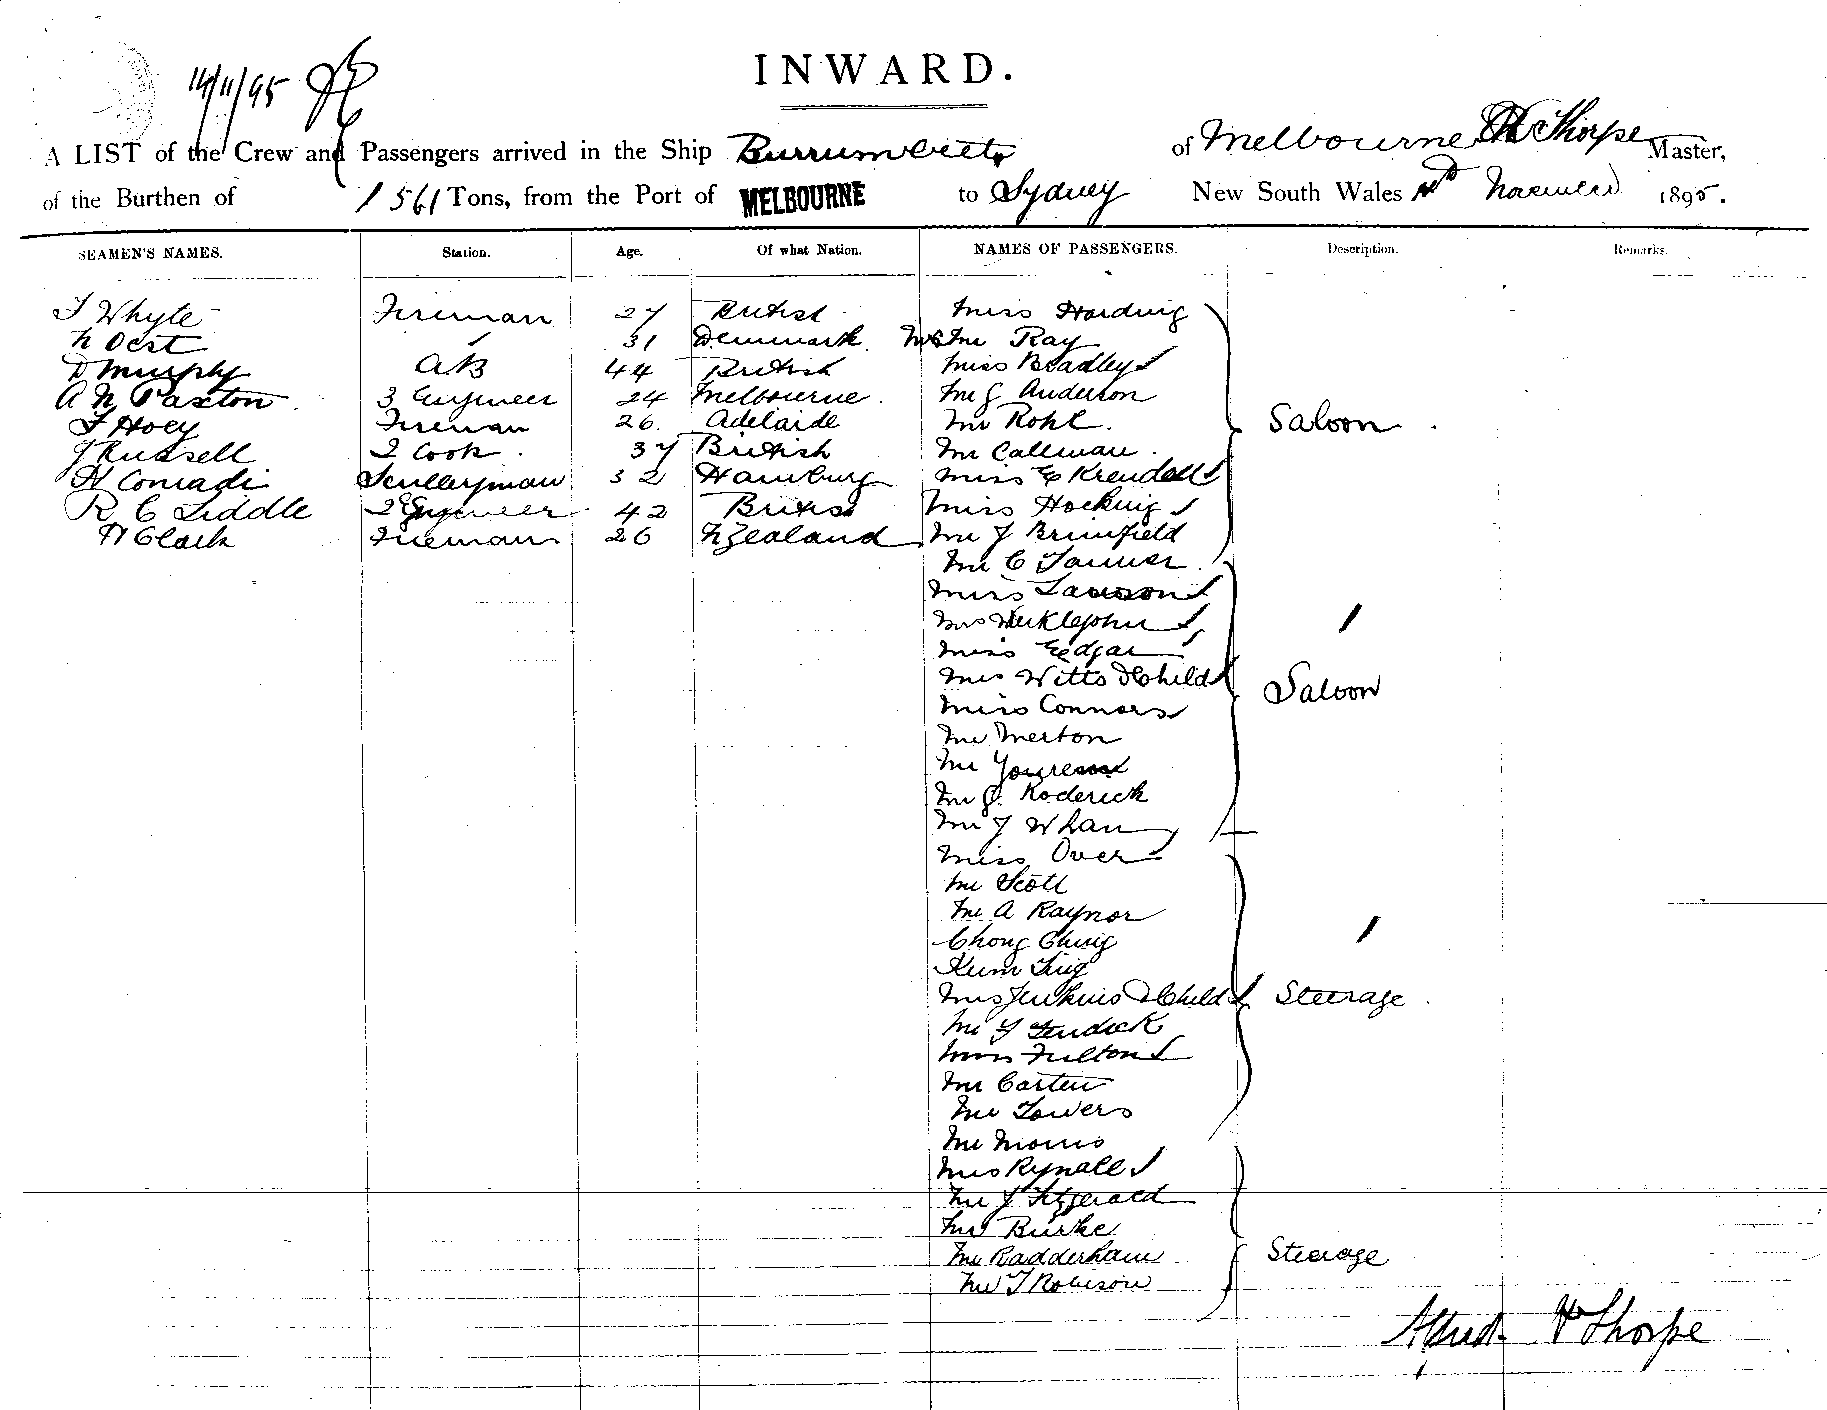 14/11/95
INWARD.
A LIST of the Crew and Passengers arrived in the Ship Burrumbeet of Melbourne Thorpe Master,
of the Burthen of 1561 Tons, from the Port of MELBOURNE to Sydney New South Wales 1895.
SEAMEN'S NAMES. Station. Age. Of what Nation. NAMES OF PASSENGERS. Description. Remarks.
T Whyte Fireman 27 British Miss Harding
N Oest 31 Denmark Ray
D Murphy AB 44 British Miss Bradley
A N Paxton 3 Engineer 24 Melbourne Mr J Anderson
T Hoey Fireman 26 Adelaide Mr Rohl Saloon
J Russell 2 Cook 37 British Mr Callman
H Conradi Sculleryman 32 Hamburg Miss E Krendell
R C Liddle 2 Engineer 42 British Miss Hocking
H Clark Fireman 26 N Zealand Mr J Brimfield
Mr C Tanner
Miss Lawson
Mrs
Miss Edgar
Mrs Witts & Child
Miss Connors Saloon
Mr Merton
Mr
Mr J. Roderick
Mr J Whan
Miss Over
Mr Scott
Mr A Raynor
Chong Ching
Kum Ting
Mrs Jenkins & Child Steerage
Mr
Miss Fulton
Mr Carter
Mr Towers
Mr Morris
Mrs Rynall
Mr J Fitzgerald
Mr Burke
Mr Radderham Steerage
Mr T Robison
Alfred H Thorpe